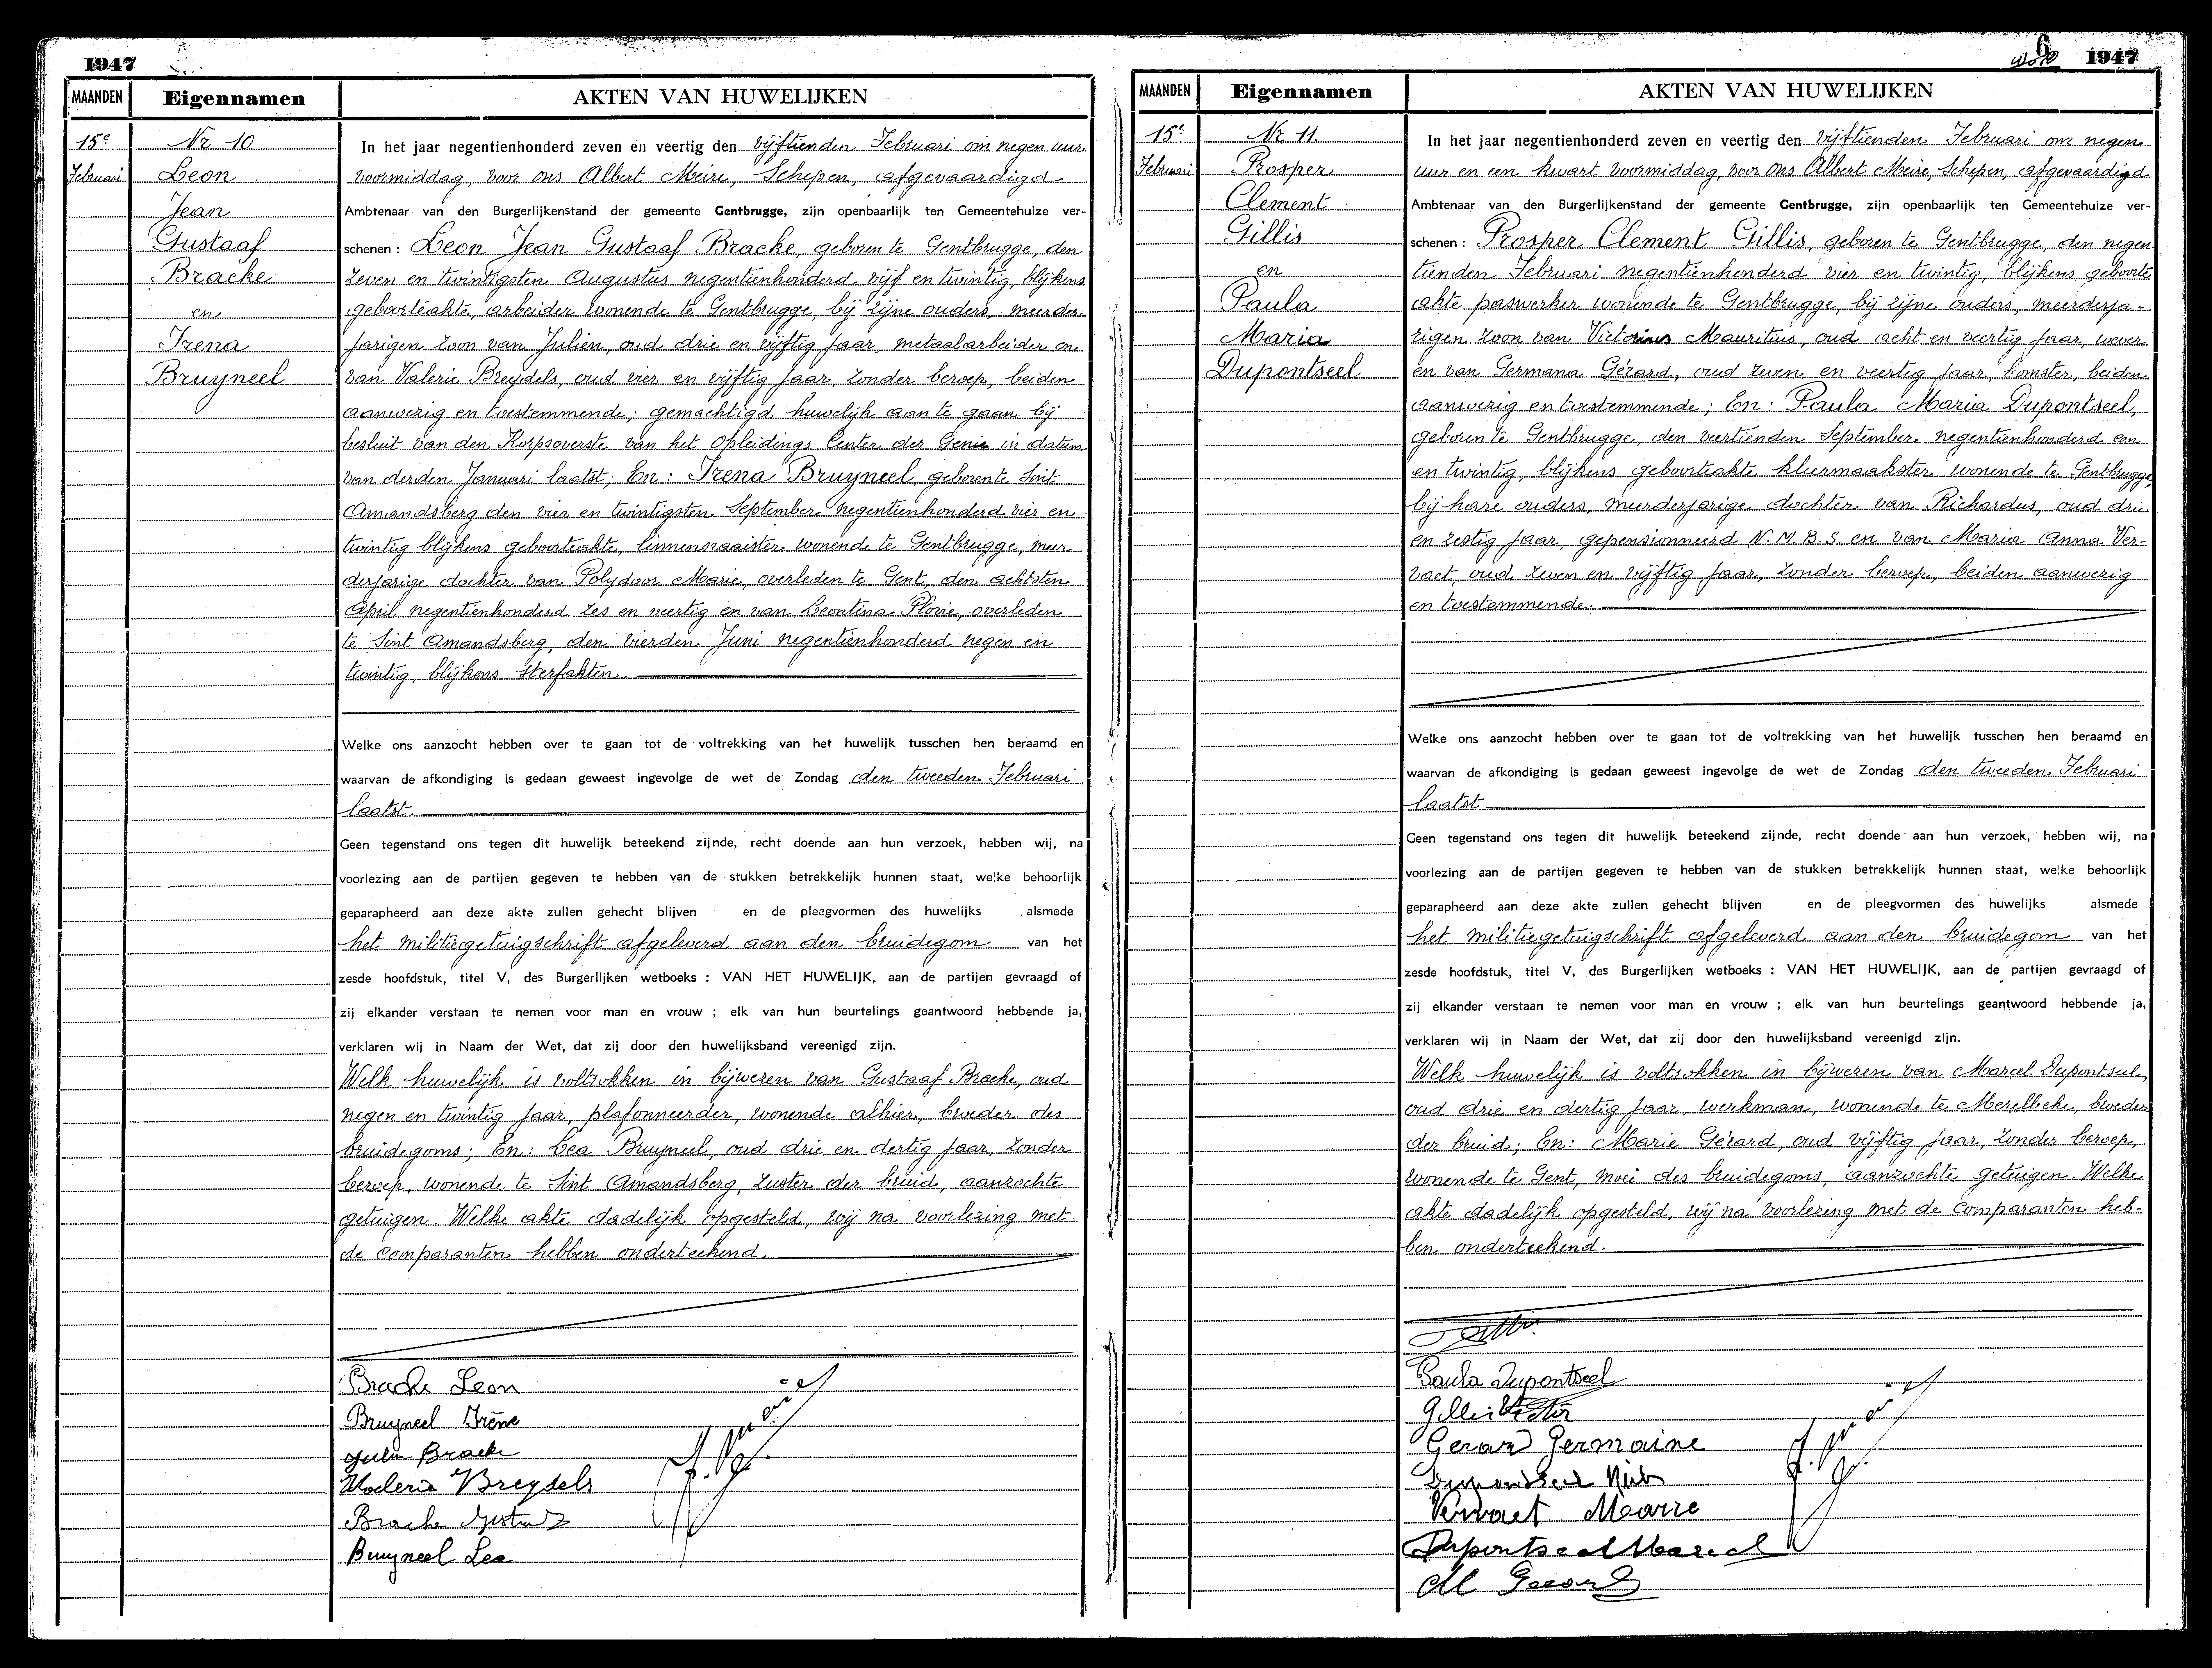 1947
MAANDEN Eigennamen AKTEN VAN HUWELIJKEN
15e Nr 10
Februari Leon
Jean
Gustaaf
Bracke
en
Irena
Bruyneel
In het jaar negentienhonderd zeven en veertig den vijftienden Februari om negen uur
voormiddag, voor ons Albert Meire, Schepen, afgevaardigd
Ambtenaar van den Burgerlijkenstand der gemeente Gentbrugge, zijn openbaarlijk ten Gemeentehuize ver-
schenen : Leon Jean Gustaaf Bracke, geboren te Gentbrugge, den
zeven en twintigsten Augustus negentienhonderd vijf en twintig, blijkens
geboorteakte, arbeider wonende te Gentbrugge, bij zijne ouders, meerder-
jarigen zoon van Julien, oud drie en vijftig jaar, metaalarbeider en
van Valerie Breydels, oud vier en vijftig jaar, zonder beroep, beiden
aanwezig en toestemmende; gemachtigd huwelijk aan te gaan bij
besluit van den Korpsoverste van het Opleidings Center der Genie in datum
van derden Januari laatst; En: Irena Bruyneel, geboren te Sint
Amandsberg den vier en twintigsten September negentienhonderd vier en
twintig blijkens geboorteakte, linnennaaister wonende te Gentbrugge, meer
derjarige dochter van Polydoor Marie, overleden te Gent, den achtsten
April negentienhonderd zes en veertig en van Leontina Plovie, overleden
te Sint Amandsberg, den vierden Juni negentienhonderd negen en
twintig, blijkens sterfakten.
Welke ons aanzocht hebben over te gaan tot de voltrekking van het huwelijk tusschen hen beraamd en
waarvan de afkondiging is gedaan geweest ingevolge de wet de Zondag den tweeden Februari
laatst.
Geen tegenstand ons tegen dit huwelijk beteekend zijnde, recht doende aan hun verzoek, hebben wij, na
voorlezing aan de partijen gegeven te hebben van de stukken betrekkelijk hunnen staat, welke behoorlijk
geparapheerd aan deze akte zullen gehecht blijven en de pleegvormen des huwelijks alsmede
het militiegetuigschrift afgeleverd aan den bruidegom van het
zesde hoofdstuk, titel V, des Burgerlijken wetboeks : VAN HET HUWELIJK, aan de partijen gevraagd of
zij elkander verstaan te nemen voor man en vrouw ; elk van hun beurtelings geantwoord hebbende ja,
verklaren wij in Naam der Wet, dat zij door den huwelijksband vereenigd zijn.
Welk huwelijk is voltrokken in bijwezen van Gustaaf Bracke, oud
negen en twintig jaar, plafonneerder, wonende alhier, broeder des
bruidegoms; En: Lea Bruyneel, oud drie en dertig jaar, zonder
beroep, wonende te Sint Amandsberg, zuster der bruid, aanzochte
getuigen. Welke akte dadelijk opgesteld, wij na voorlezing met
de comparanten hebben onderteekend.
Bracke Leon
Bruyneel Irène
Julien Bracke
Valerie Breydels
Bracke Gustaaf
Bruyneel Lea
6 1947
MAANDEN Eigennamen AKTEN VAN HUWELIJKEN
15e Nr 11.
Februari Prosper
Clement
Gillis
en
Paula
Maria
Dupontseel
In het jaar negentienhonderd zeven en veertig den vijftienden Februari om negen
uur en een kwart voormiddag, voor ons Albert Meire, Schepen, afgevaardigd
Ambtenaar van den Burgerlijkenstand der gemeente Gentbrugge, zijn openbaarlijk ten Gemeentehuize ver-
schenen : Prosper Clement Gillis, geboren te Gentbrugge, den negen
tienden Februari negentienhonderd vier en twintig, blijkens geboorte
akte paswerker wonende te Gentbrugge, bij zijne ouders, meerderja-
rigen zoon van Victorius Mauritius, oud acht en veertig jaar, wever
en van Germana Gérard, oud zeven en veertig jaar, bomster, beiden
aanwezig en toestemmende; En: Paula Maria Dupontseel,
geboren te Gentbrugge, den veertienden September negentienhonderd een
en twintig, blijkens geboorteakte kleermaakster wonende te Gentbrugge,
bij hare ouders, meerderjarige dochter van Richardus, oud drie
en zestig jaar, gepensionneerd N.M.B.S. en van Maria Anna Ver-
vaet, oud zeven en vijftig jaar, zonder beroep, beiden aanwezig
en toestemmende.
Welke ons aanzocht hebben over te gaan tot de voltrekking van het huwelijk tusschen hen beraamd en
waarvan de afkondiging is gedaan geweest ingevolge de wet de Zondag den tweeden Februari
laatst
Geen tegenstand ons tegen dit huwelijk beteekend zijnde, recht doende aan hun verzoek, hebben wij, na
voorlezing aan de partijen gegeven te hebben van de stukken betrekkelijk hunnen staat, welke behoorlijk
geparapheerd aan deze akte zullen gehecht blijven en de pleegvormen des huwelijks alsmede
het militiegetuigschrift afgeleverd aan den bruidegom van het
zesde hoofdstuk, titel V, des Burgerlijken wetboeks : VAN HET HUWELIJK, aan de partijen gevraagd of
zij elkander verstaan te nemen voor man en vrouw ; elk van hun beurtelings geantwoord hebbende ja,
verklaren wij in Naam der Wet, dat zij door den huwelijksband vereenigd zijn.
Welk huwelijk is voltrokken in bijwezen van Marcel Dupontseel,
oud drie en dertig jaar, werkman, wonende te Merelbeke, broeder
der bruid; En: Marie Gérard, oud vijftig jaar, zonder beroep,
wonende te Gent, moei des bruidegoms, aanzochte getuigen. Welke
akte dadelijk opgesteld, wij na voorlezing met de comparanten heb-
ben onderteekend.
Paula Dupontseel
Gillis Victor
Gerard Germaine
Dupontseel
Vervaet Marie
Dupontseel Marcel
M Gerard